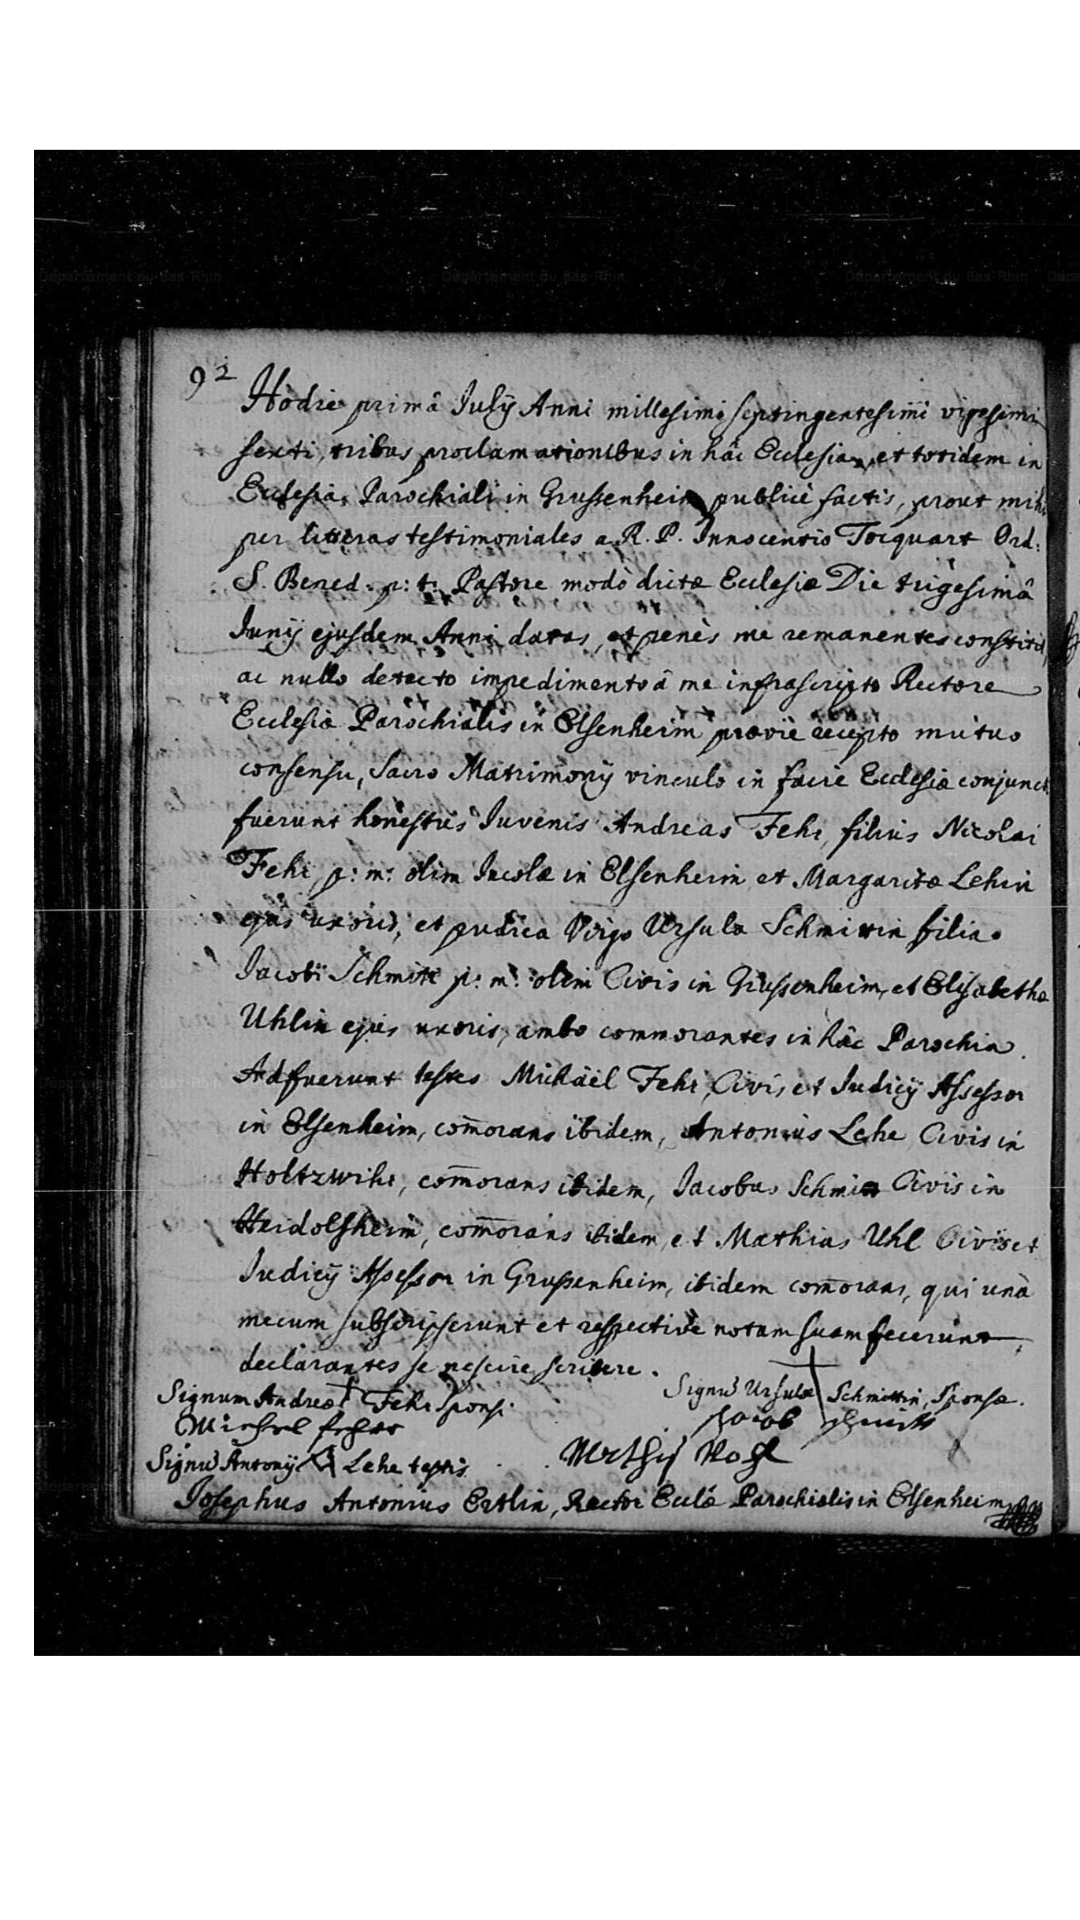 92
Hodie primâ Julÿ Anni millesimi septingentesimi vigesimi
sexti, tribus proclamationibus in hâc Ecclesia, et totidem in
Ecclesia Parochiali in Grussenheim publicè factis, prout mihi
per litteras testimoniales a R. P. Innocentio Tocquart Ord:
S. Bened. p: t: Pastore modò dictæ Ecclesiæ Die trigesimâ
Junÿ ejusdem Anni datas, et penès me remanentes constitit,
ac nullo detecto impedimento â me infrascripto Rectore
Ecclesiæ Parochialis in Elsenheim præviè recepto mutuo
consensu, Sacro Matrimonÿ vinculo in facie Ecclesiæ conjuncti
fuerunt honestus Juvenis Andreas Fehr, filius Nicolai
Fehr p: m: olim Incolæ in Elsenheim et Margaritæ Lehin
ejus uxoris, et pudica Virgo Ursula Schmittin filia
Jacobi Schmitt p: m: olim Civis in Grussenheim, et Elisabethæ
Uhlin ejus uxoris, ambo commorantes in hâc Parochia.
Adfuerunt testes Michäel Fehr, Civis et Judicÿ Assessor
in Elsenheim, com̄orans ibidem, Antonius Lehe Civis in
Holtzwihr, com̄orans ibidem, Jacobus Schmitt Civis in
Heidolsheim, com̄orans ibidem, et Mathias Uhl Civis et
Judicÿ Assessor in Grussenheim, ibidem com̄orans, qui unà
mecum subscripserunt et respectivè notam suam fecerunt
declarantes se nescire scribere.
Signum Andreæ + Fehr Sponsi. Signū Ursulæ + Schmittin, Sponsæ.
Michel feher Jacob schmitt
Signū Antonÿ Lehe testis. Mathis
Josephus Antonius Ertlin, Rector Ecclæ Parochialis in Elsenheim
Département du Bas-Rhin
Département du Bas-Rhin
Département du Bas-Rhin